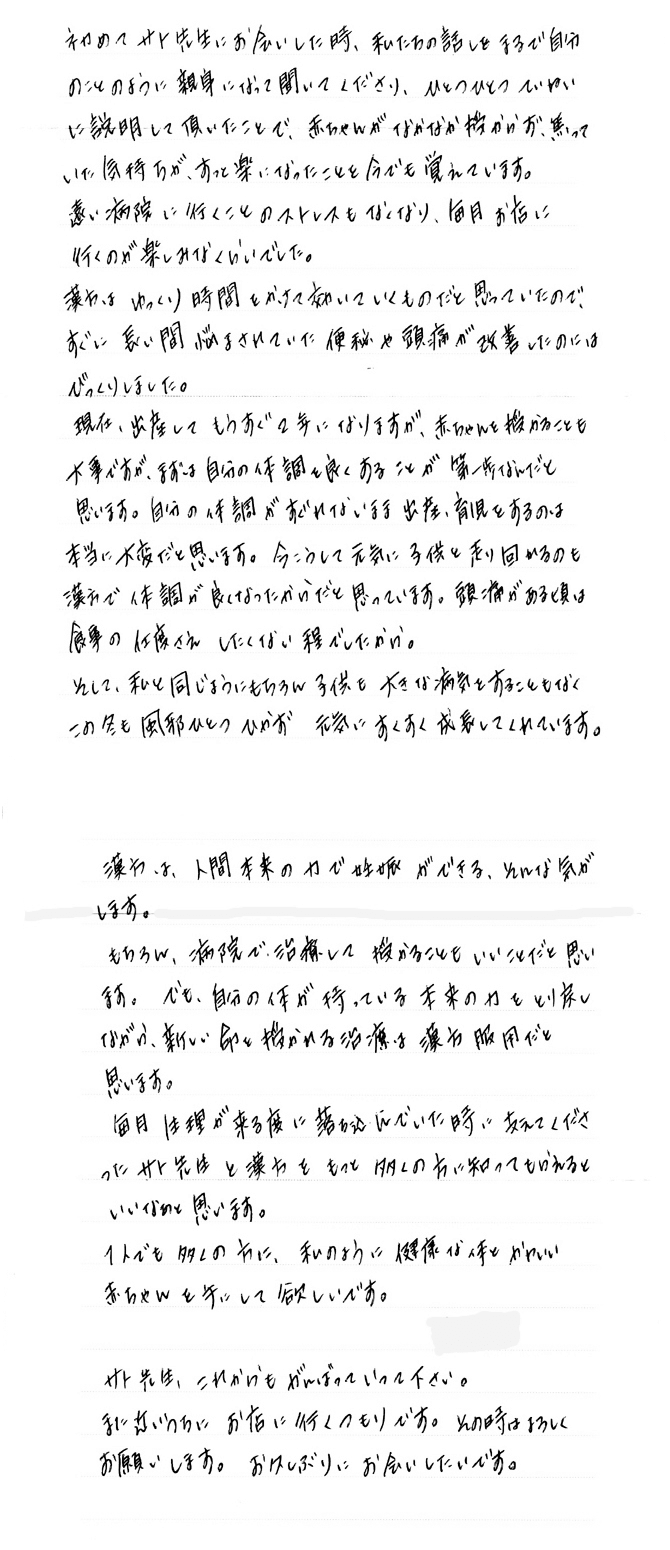 初めてサト先生にお会いした時、私たちの話しをまるで自分
のことのように親身になって聞いてくださり、ひとつひとつていねい
に説明して頂いたことで、赤ちゃんがなかなか授からず、焦って
いた気持ちが、すっと楽になったことを今でも覚えています。
悪い病院に行くことのストレスもなくなり、毎月お店に
行くのが楽しみなくらいでした。
漢方は ゆっくり時間をかけて効いていくものだと思っていたので、
すぐに 長い間 悩まされていた便秘や頭痛が改善したのには
びっくりしました。
現在、出産してもうすぐ2年になりますが、赤ちゃんを授かることも
大事ですが、まずは自分の体調を良くすることが 第一歩なんだと
思います。自分の体調がすぐれないまま出産、育児をするのは
本当に大変だと思います。今こうして元気に子供と走り回れるのも
漢方で体調が良くなったからだと思っています。頭痛がある頃は
食事の仕度さえ したくない程でしたから。
そして、私と同じようにもちろん子供も 大きな病気をすることもなく
この冬も風邪ひとつひかず 元気にすくすく成長してくれています。
漢方は、人間本来の力で妊娠ができる、そんな気が
します。
もちろん、病院で治療して 授かることもいいことだと思い
ます。でも、自分の体が持っている本来の力をとり戻し
ながら、新しい命を授かれる治療は 漢方服用だと
思います。
毎月 生理が来る度に落ち込んでいた時に支えてくださ
ったサト先生と漢方を もっと多くの方に知ってもらえると
いいなあと思います。
1人でも多くの方に、私のように健康な体とかわいい
赤ちゃんを手にして欲しいです。
サト先生、これからもがんばっていって下さい。
また近いうちに お店に行くつもりです。その時はよろしく
お願いします。お久しぶりにお会いしたいです。